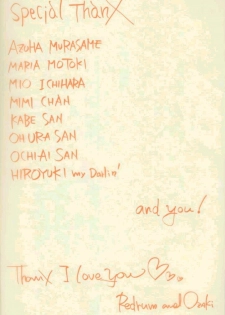 Special ThanX
AZUHA MURASAME
MARIA MOTOKI
MIO ICHIHARA
MIMI CHAN
KABE SAN
OHURA SAN
OCHIAI SAN
HIROYUKI my Daalin'
and you!
ThanX I love you ♡♡...
Redrum and